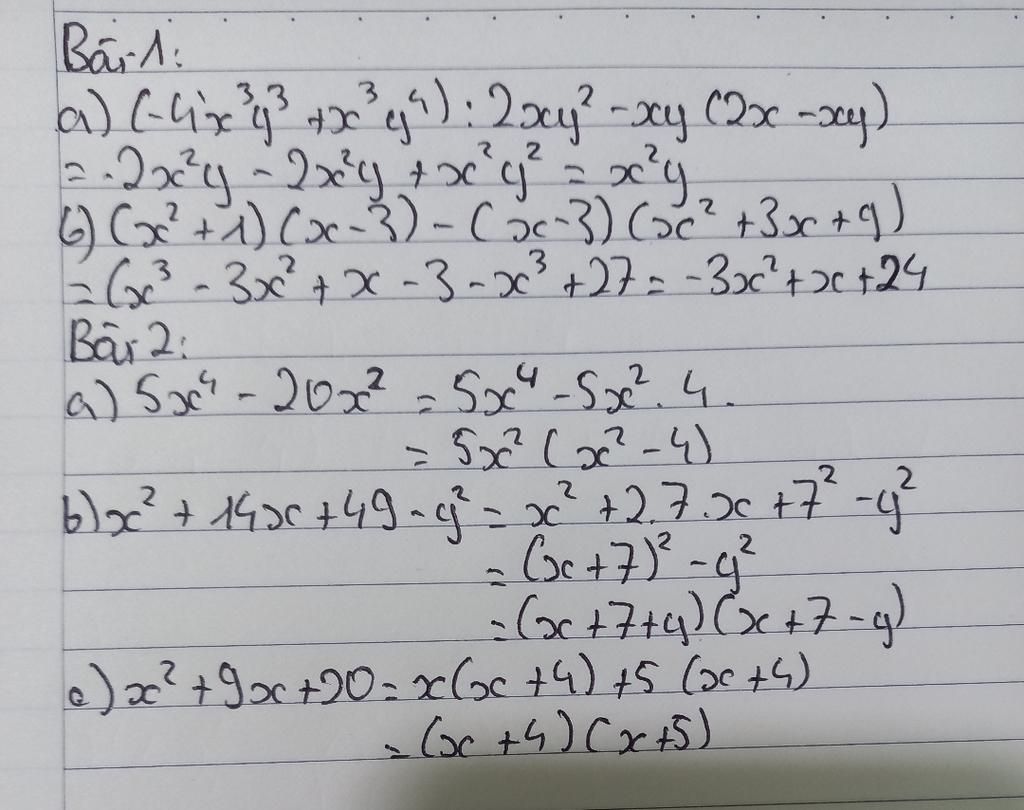 Bài 1:
a) (-4x³y³ + x³y⁴) : 2xy² - xy (2x - xy)
= -2x²y - 2x²y + x²y² = x²y
b) (x² + 1) (x - 3) - (x - 3) (x² + 3x + 9)
= (x³ - 3x² + x - 3 - x³ + 27 = -3x² + x + 24
Bài 2:
a) 5x⁴ - 20x² = 5x⁴ - 5x² . 4 .
= 5x² (x² - 4)
b) x² + 14x + 49 - y² = x² + 2.7.x + 7² - y²
= (x + 7)² - y²
= (x + 7 + y) (x + 7 - y)
c) x² + 9x + 20 = x(x + 4) + 5 (x + 4)
= (x + 4) (x + 5)